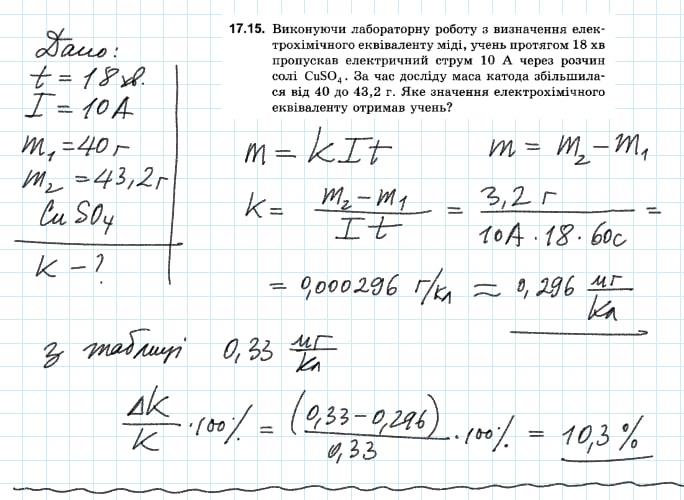 17.15. Виконуючи лабораторну роботу з визначення елек-
трохімічного еквіваленту міді, учень протягом 18 хв
пропускав електричний струм 10 А через розчин
солі CuSO₄. За час досліду маса катода збільшила-
ся від 40 до 43,2 г. Яке значення електрохімічного
еквіваленту отримав учень?
Дано:
t = 18 хв.
I = 10 А
m₁ = 40 г
m₂ = 43,2 г
CuSO₄
k – ?
m = kIt m = m₂ – m₁
k = (m₂ – m₁)/(It) = 3,2 г/(10А · 18 · 60с) =
= 0,000296 г/кл ≈ 0,296 мг/Кл
з таблиці 0,33 мг/кл
Δk/k · 100% = (0,33 – 0,296)/0,33 · 100% = 10,3 %